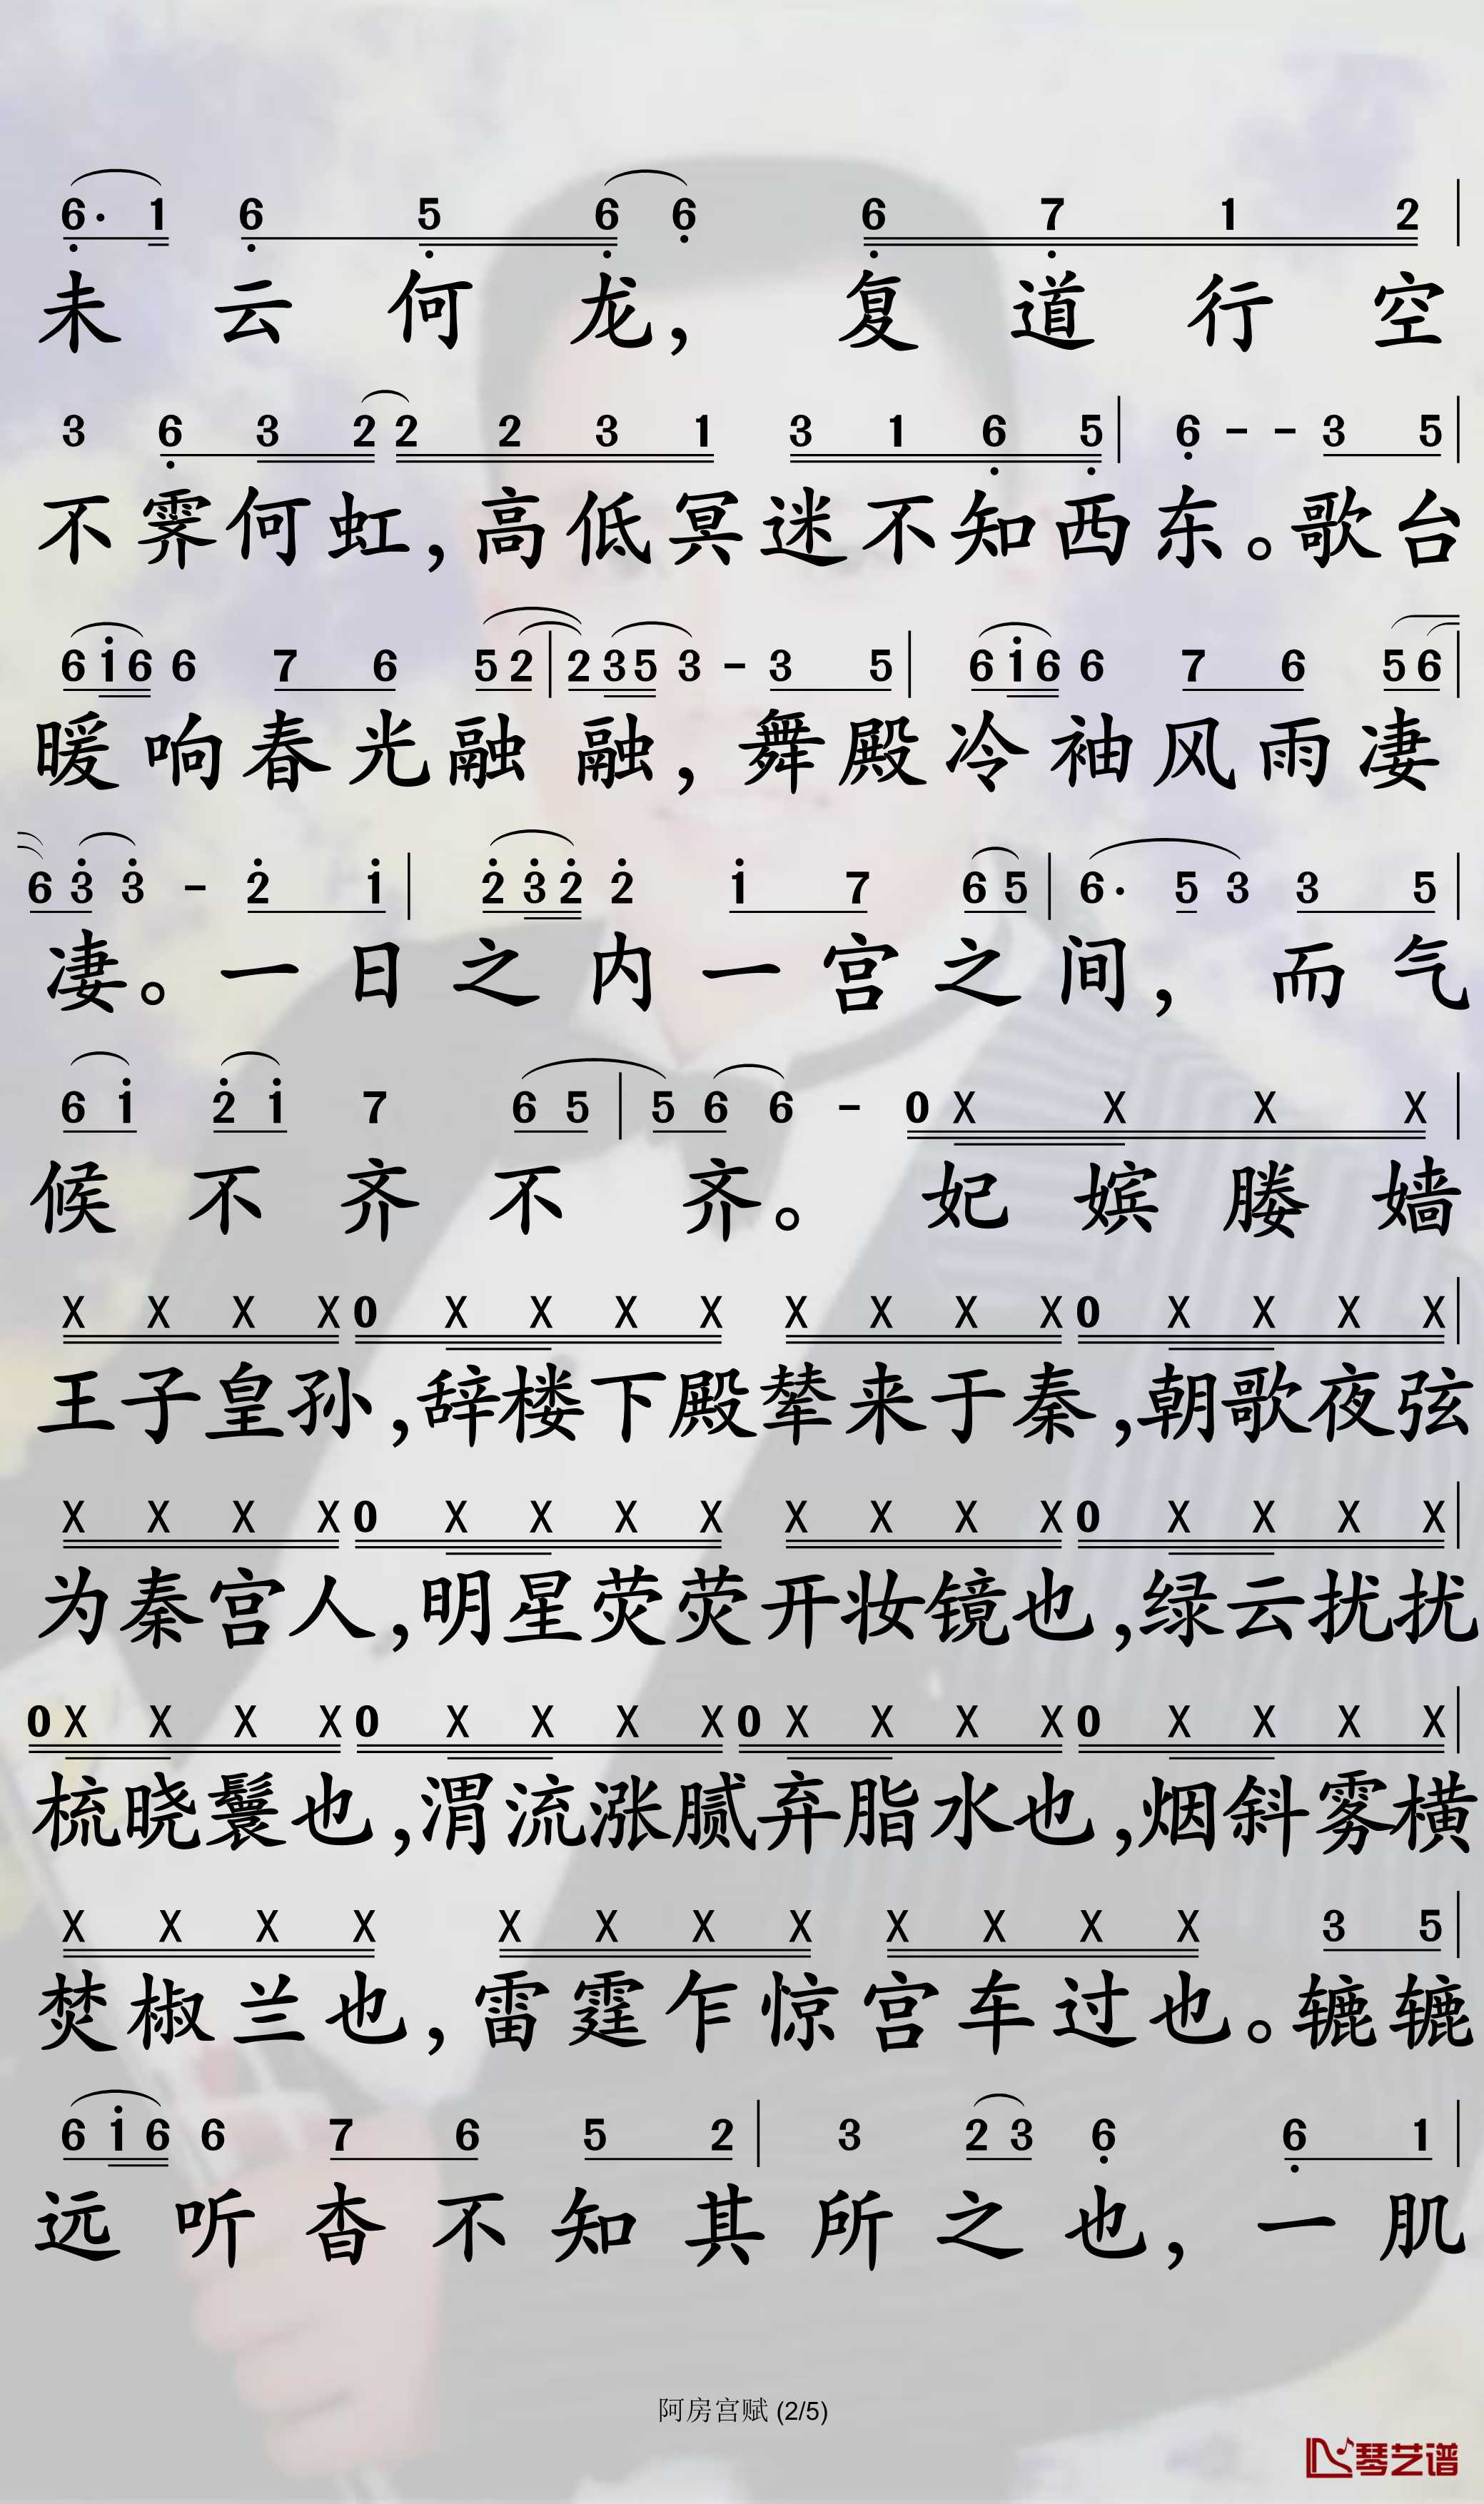 6· 1 6 5 6 6 6 7 1 2
未云何龙，复道行空
3 6 3 2 2 2 3 1 3 1 6 5 6 - - 3 5
不霁何虹，高低冥迷不知西东。歌台
6 1 6 6 7 6 5 2 2 3 5 3 - 3 5 6 1 6 6 7 6 5 6
暖响春光融融，舞殿冷袖风雨凄
6 3 3 - 2 1 2 3 2 2 1 7 6 5 6· 5 3 3 5
凄。一日之内一宫之间，而气
6 1 2 1 7 6 5 5 6 6 - 0 X X X X
候不齐不齐。妃嫔媵嫱
X X X X 0 X X X X X X X X 0 X X X X
王子皇孙，辞楼下殿辇来于秦，朝歌夜弦
X X X X 0 X X X X X X X X 0 X X X X
为秦宫人，明星荧荧开妆镜也，绿云扰扰
0 X X X X 0 X X X X 0 X X X X 0 X X X X
梳晓鬟也，渭流涨腻弃脂水也，烟斜雾横
X X X X X X X X X X X X 3 5
焚椒兰也，雷霆乍惊宫车过也。辘辘
6 1 6 6 7 6 5 2 3 2 3 6 6 1
远听杳不知其所之也，一肌
阿房宫赋 (2/5)
琴艺谱